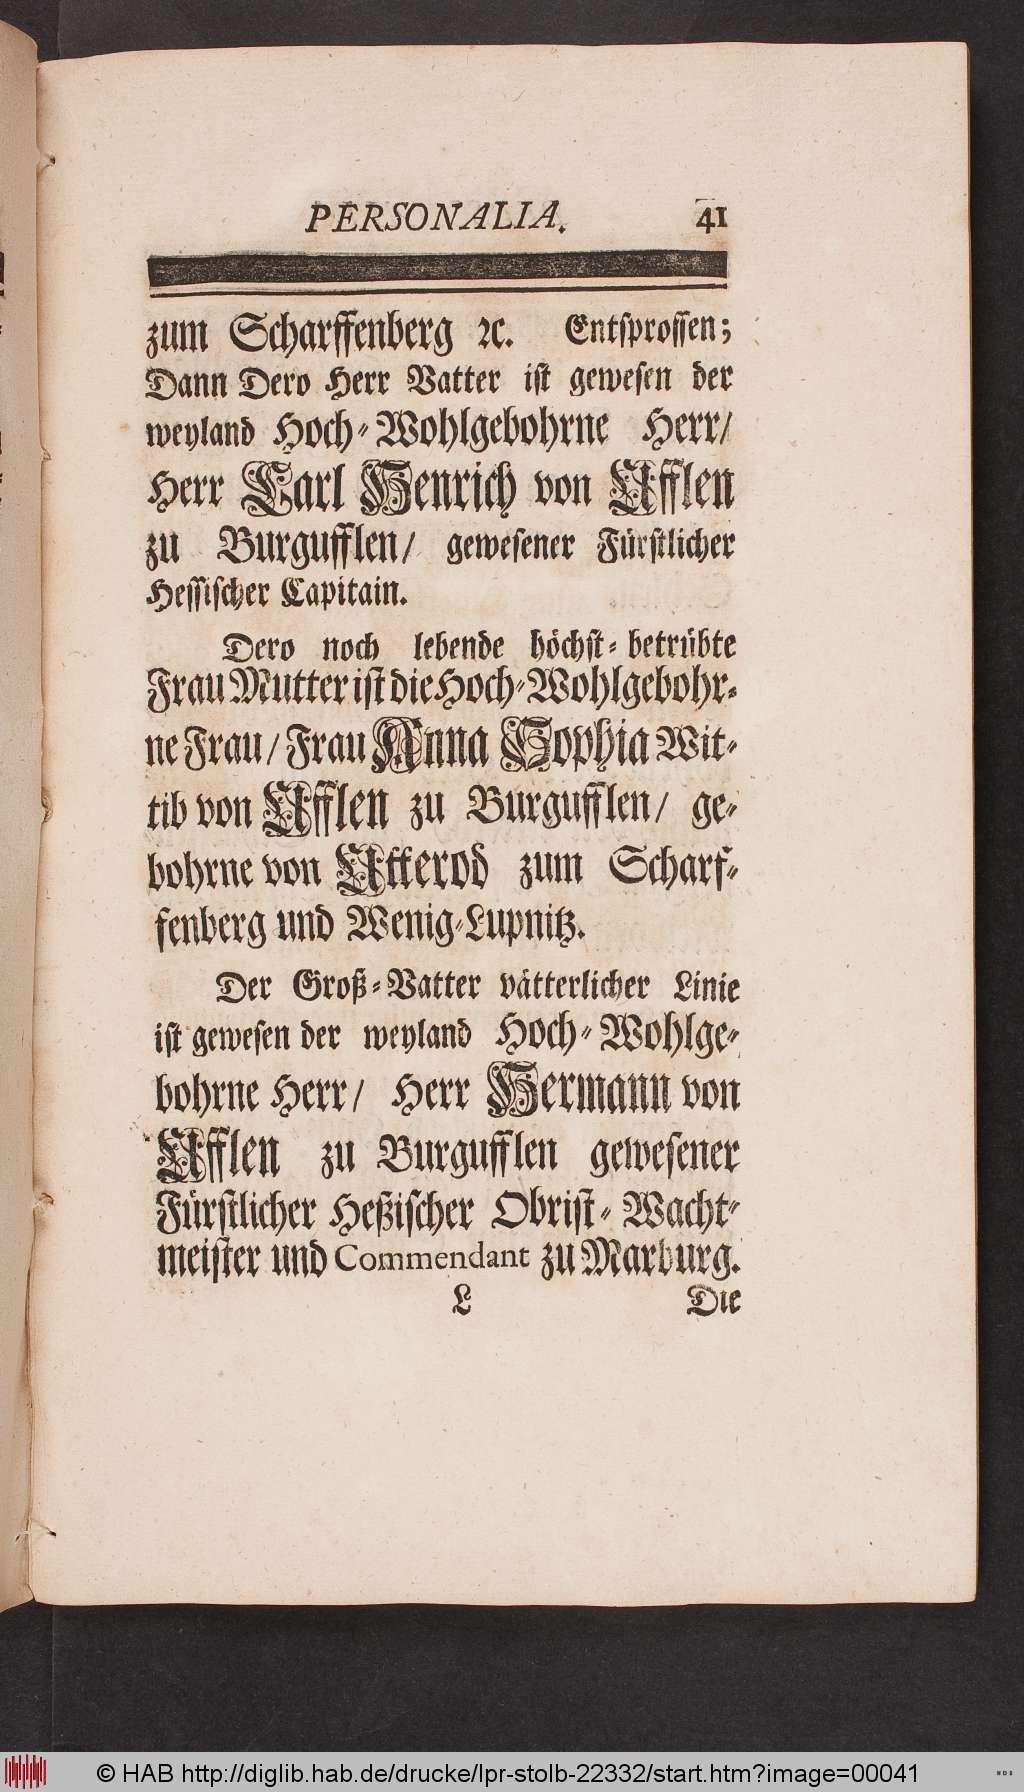 PERSONALIA. 41
zum Scharffenberg ꝛc. Entsprossen;
Dann Dero Herr Vatter ist gewesen der
weyland Hoch-Wohlgebohrne Herr/
Herr Carl Henrich von Ufflen
zu Burgufflen/ gewesener Fürstlicher
Hessischer Capitain.
Dero noch lebende höchst-betrübte
Frau Mutter ist die Hoch-Wohlgebohr-
ne Frau/ Frau Anna Sophia Wit-
tib von Ufflen zu Burgufflen/ ge-
bohrne von Utterod zum Scharf-
fenberg und Wenig-Lupnitz.
Der Groß-Vatter vätterlicher Linie
ist gewesen der weyland Hoch-Wohlge-
bohrne Herr/ Herr Hermann von
Ufflen zu Burgufflen gewesener
Fürstlicher Heßischer Obrist-Wacht-
meister und Commendant zu Marburg.
L Die
© HAB http://diglib.hab.de/drucke/lpr-stolb-22332/start.htm?image=00041